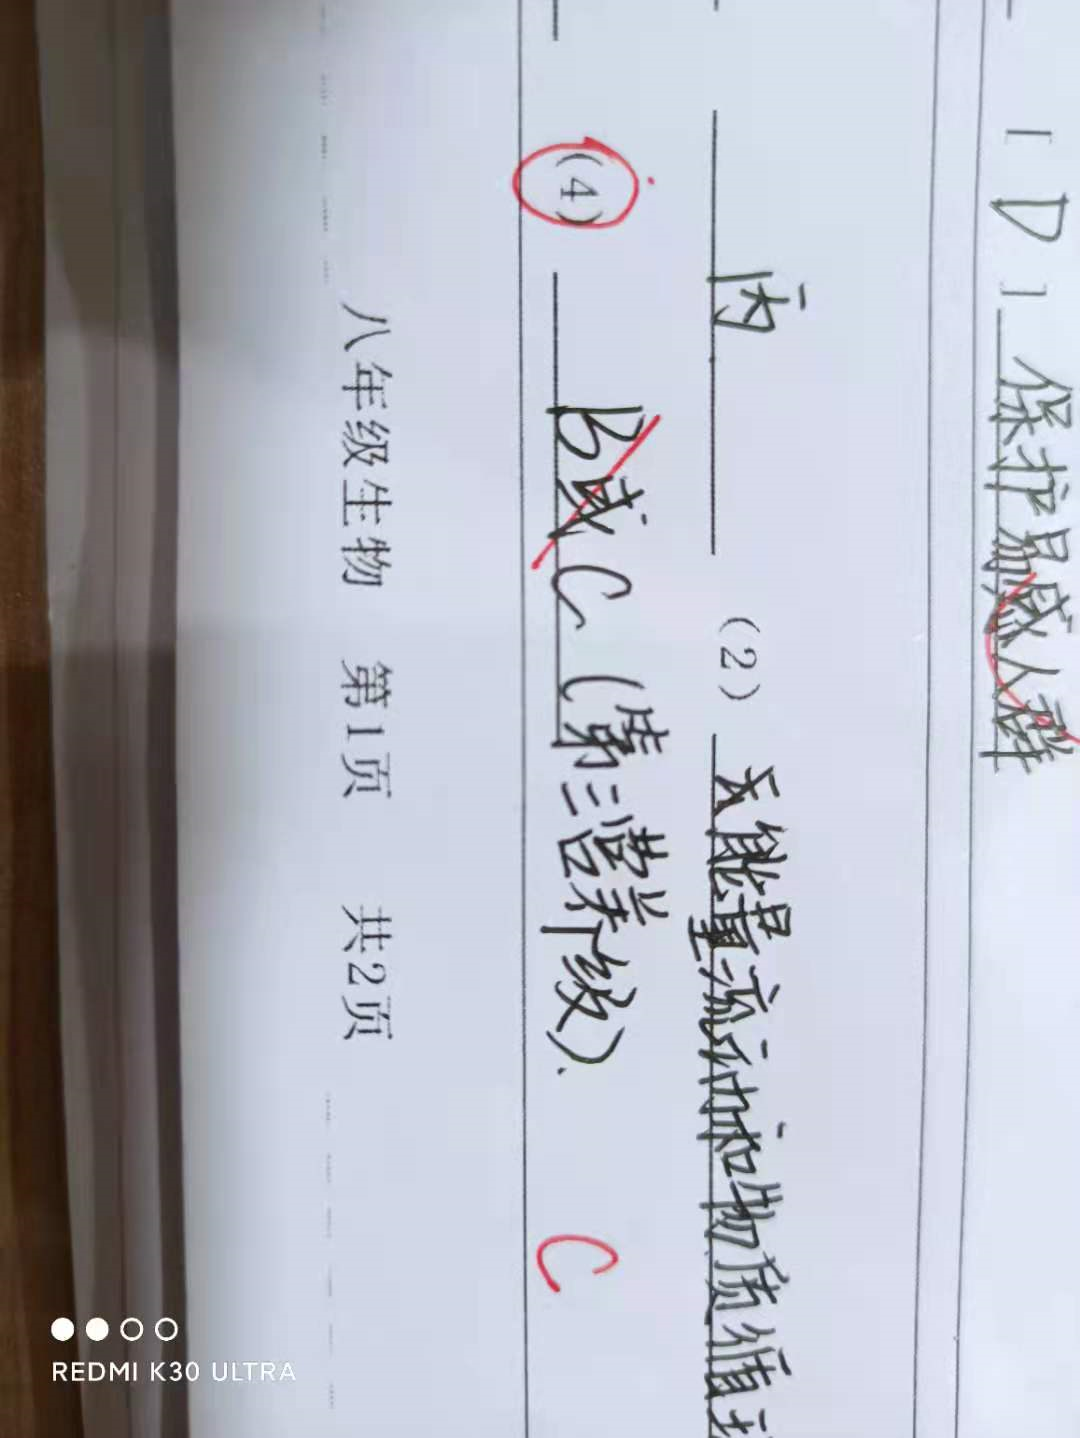 [ D ] 保护易感人群
内 (2) 能量流动和物质循
(4) B或C(第三营养级). C
八年级生物 第1页 共2页
REDMI K30 ULTRA